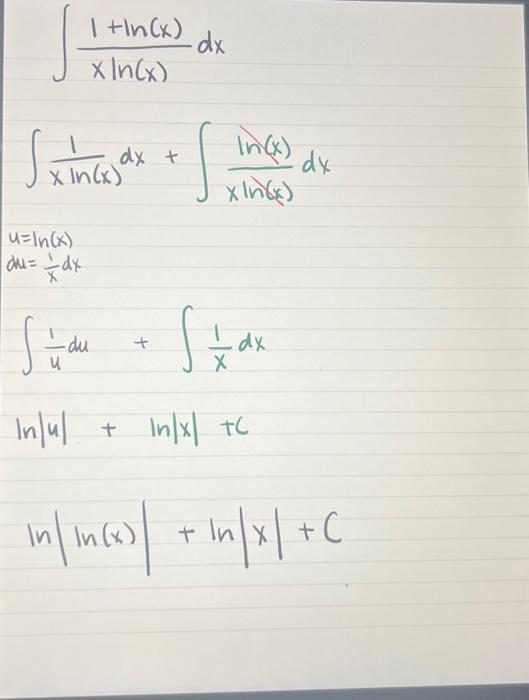 ∫ (1+ln(x))/(x ln(x)) dx
∫ 1/(x ln(x)) dx + ∫ ln(x)/(x ln(x)) dx
u=ln(x)
du= 1/x dx
∫ 1/u du + ∫ 1/x dx
ln|u| + ln|x| +C
ln|ln(x)| + ln|x| + C